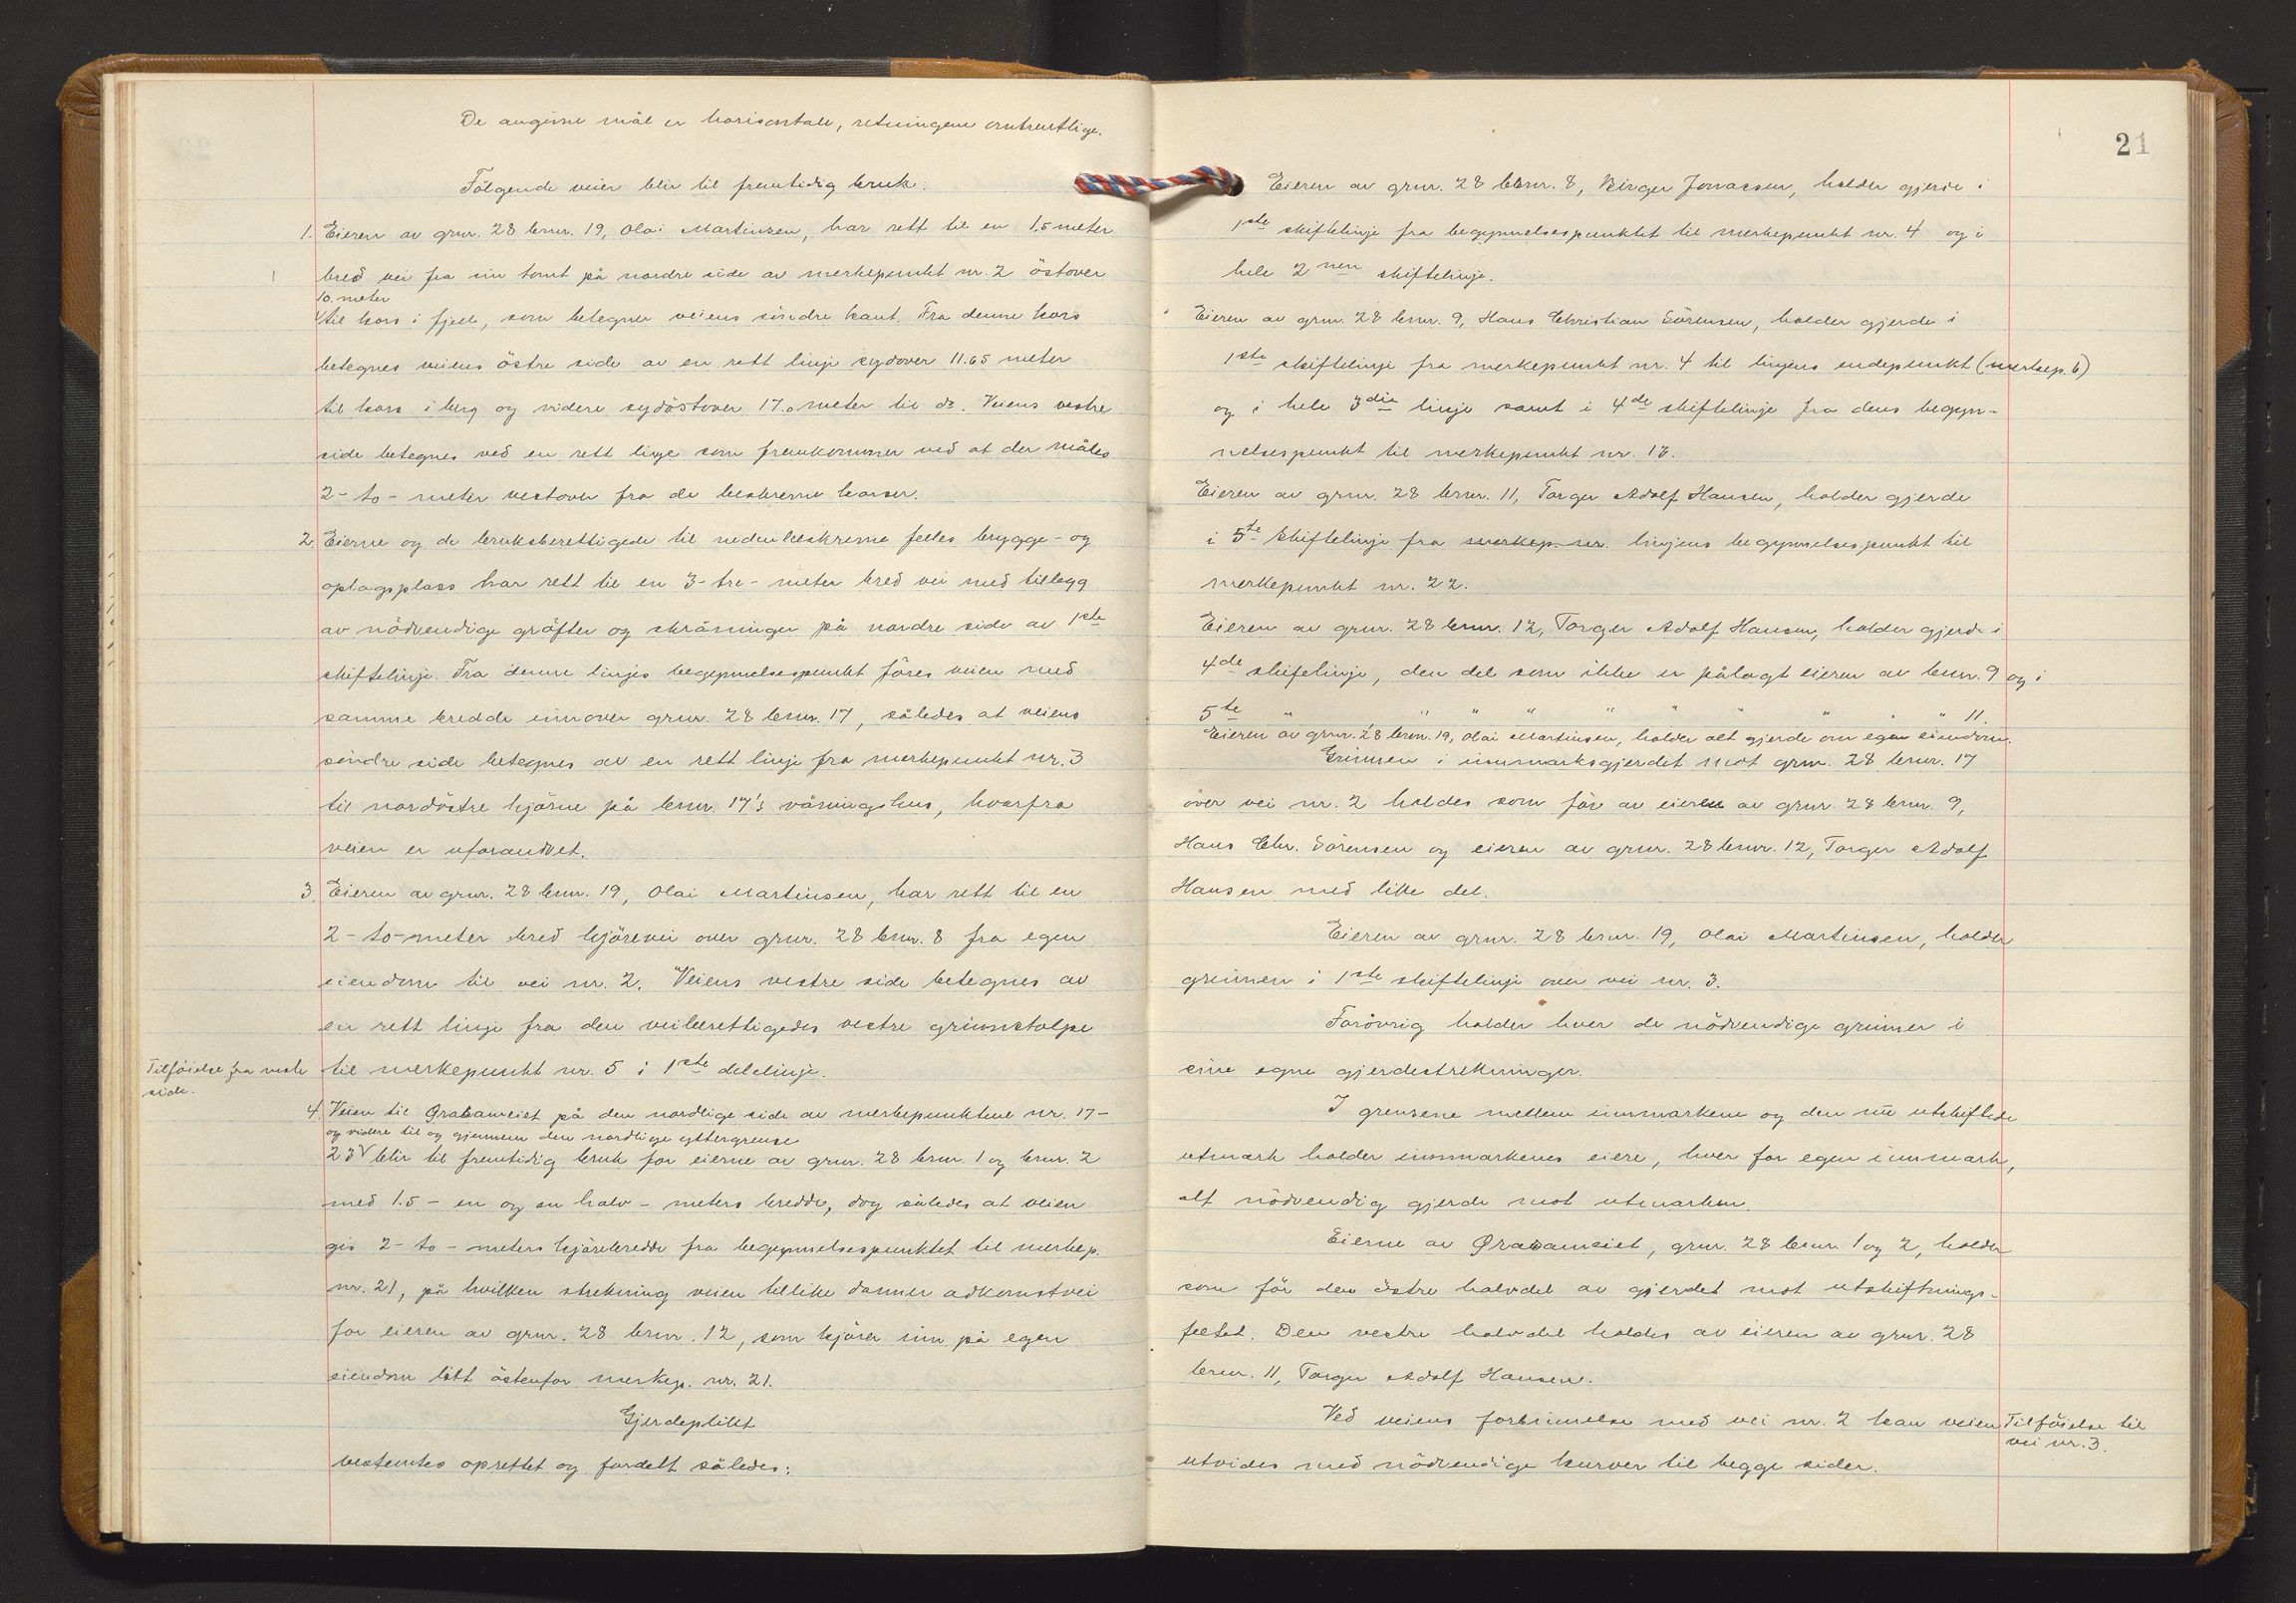 De angivne mål er horisontale, retningene omtrentlige.
Følgende veier blir til fremtidig bruk:
1. Eieren av grnr. 28 brnr. 19, Olai Martinsen, har rett til en 1.5 meter
bred vei fra sin tomt på nordre side av merkepunkt nr. 2 östover
10. meter
til kors i fjell, som betegner veiens söndre kant. Fra denne kors
betegnes veiens östre side av en rett linje sydover 11.65 meter
til kors i berg og videre sydöstover 17.0 meter til do. Veiens vestre
side betegnes ved en rett linje som fremkommer ved at der måles
2 - to - meter vestover fra de beskrevne korser.
2. Eierne og de bruksberettigede til nedenbeskrevne felles brygge- og
optagsplass har rett til en 3 - tre - meter bred vei med tillegg
av nödvendige gröfter og skråninger på nordre side av 1ste
skiftelinje. Fra denne linjes begynnelsespunkt föres veien med
samme bredde innover grnr. 28 brnr. 17, således at veiens
söndre side betegnes av en rett linje fra merkepunkt nr. 3
til nordöstre hjörne på brnr. 17's våningshus, hvorfra
veien er uforandret.
3. Eieren av grnr. 28 brnr. 19, Olai Martinsen, har rett til en
2 - to - meter bred kjörevei over grnr. 28 brnr. 8 fra egen
eiendom til vei nr. 2. Veiens vestre side betegnes av
en rett linje fra den veiberettigedes vestre grinnstolpe
Tilföielse fra neste
side.
til merkepunkt nr. 5 i 1ste delelinje.
4. Veien til Grasameiet på den nordlige side av merkepunktene nr. 17-
og videre til og gjennem den nordlige yttergrense
23 V blir til fremtidig bruk for eierne av grnr. 28 brnr. 1 og brnr. 2
med 1.5 - en og en halv - meters bredde, dog således at veien
gis 2 - to - meters kjörebredde fra begynnelsespunktet til merkep.
nr. 21, på hvilken strekning veien tillike danner adkomstvei
for eieren av grnr. 28 brnr. 12, som kjörer inn på egen
eiendom litt östenfor merkep. nr. 21.
Gjerdeplikt
bestemtes oprettet og fordelt således:
21
Eieren av grnr. 28 brnr. 8, Birger Jonassen, holder gjerde i
1ste skiftelinje fra begynnelsespunktet til merkepunkt nr. 4 og i
hele 2nen skiftelinje.
Eieren av grnr. 28 brnr. 9, Hans Christian Sörensen, holder gjerde i
1ste skiftelinje fra merkepunkt nr. 4 til linjens endepunkt (merkep. 6)
og i hele 3die linje samt i 4de skiftelinje fra dens begyn-
nelsespunkt til merkepunkt nr. 18.
Eieren av grnr. 28 brnr. 11, Torger Adolf Hansen, holder gjerde
i 5te skiftelinje fra merkep. nr. linjens begynnelsespunkt til
merkepunkt nr. 22.
Eieren av grnr. 28 brnr. 12, Torger Adolf Hansen, holder gjerde i
4de skiftelinje, den del som ikke er pålagt eieren av brnr. 9 og i
5te " " " " " " " " " 11.
Eieren av grnr. 28 brnr. 19, Olai Martinsen, holder alt gjerde om egen eiendom.
Grinnen i innmarksgjerdet mot grnr. 28 brnr. 17
over vei nr. 2 holdes som för av eieren av grnr. 28 brnr. 9,
Hans Chr. Sörensen og eieren av grnr. 28 brnr. 12, Torger Adolf
Hansen med like del.
Eieren av grnr. 28 brnr. 19, Olai Martinsen, holder
grinnen i 1ste skiftelinje over vei nr. 3.
Forövrig holder hver de nödvendige grinner i
sine egne gjerdestrekninger.
I grensene mellem innmarkene og den nu utskiftede
utmark holder innmarkenes eiere, hver for egen innmark,
alt nödvendig gjerde mot utmarken.
Eierne av Grasameiet, grnr. 28 brnr. 1 og 2, holder
som för den östre halvdel av gjerdet mot utskiftnings-
feltet. Den vestre halvdel holdes av eieren av grnr. 28
brnr. 11, Torger Adolf Hansen.
Ved veiens forbinnelse med vei nr. 2 kan veien
Tilföielse til
vei nr. 3.
utvides med nödvendige kurver til begge sider.